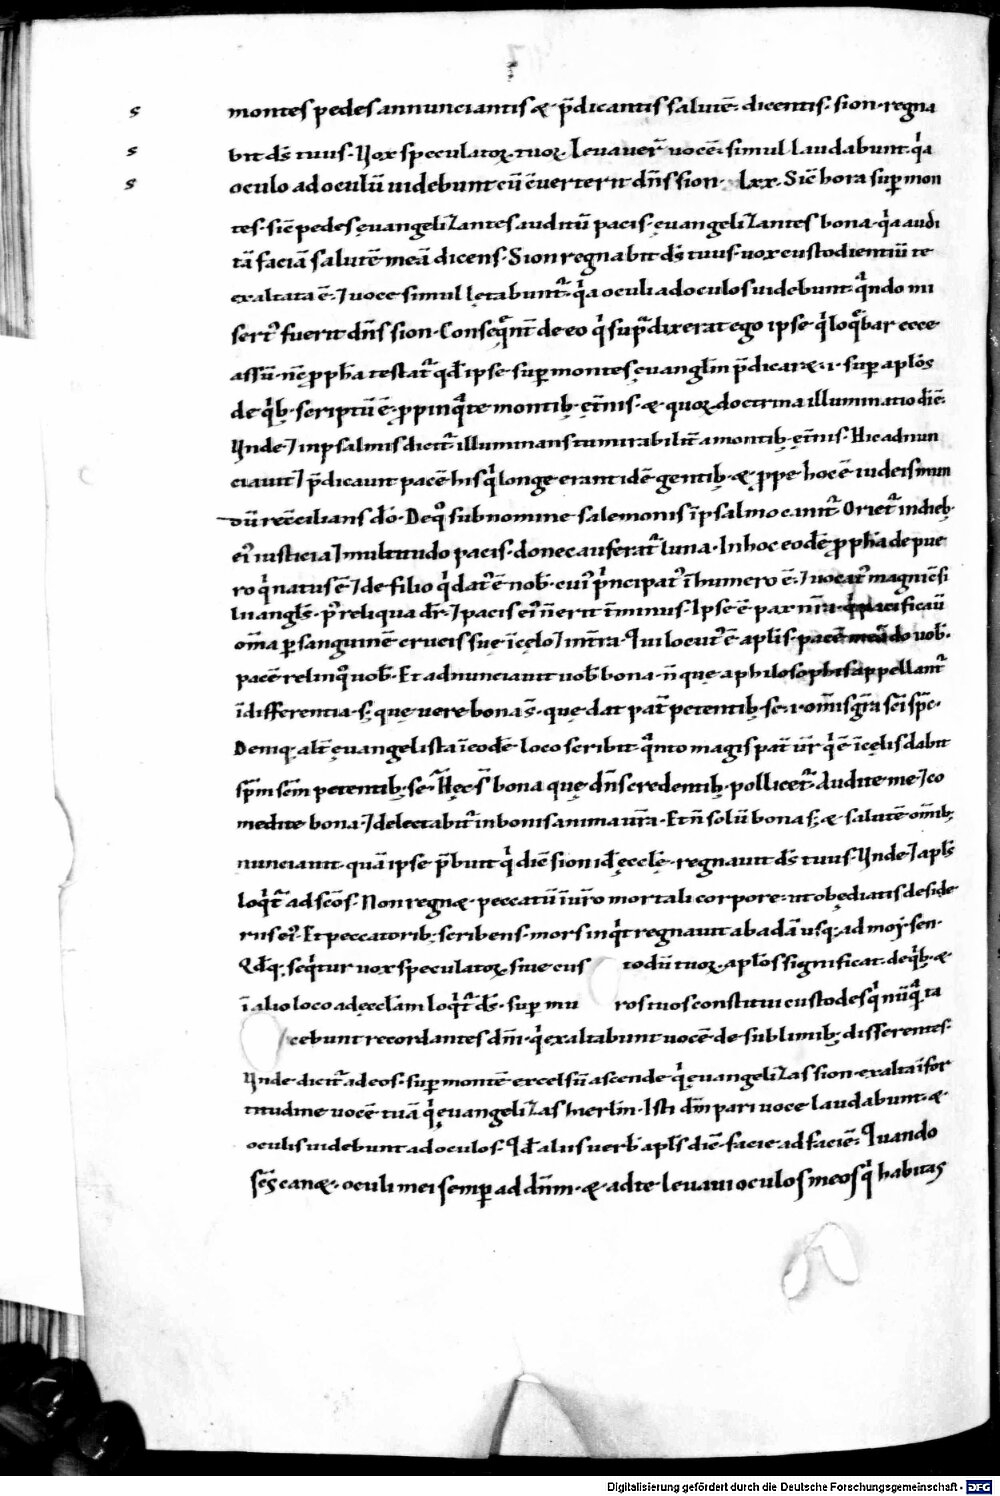 s montes pedes annunciantis & p̄dicantis salutē· dicentis· sion· regna
s bit ds̄ tuus· Uox speculatoꝝ· tuoꝝ· Leuauer̄ uocē· simul laudabunt· qͥa
s oculo ad oculū uidebunt cū c̄uerterit dn̄s sion· lxx· Sic̄ hora sup̱ mon
tes· sic̄ pedes ęuangelizantes auditū pacis· ęuangelizantes bona· qͥa audi
tā faciā salutē meā dicens· Sion regnabit ds̄ tuus· uox custodientiū te
exaltata ē· ⁊ uoce simul lętabunt᷑· qͥa oculi ad oculos uidebunt· qᷓndo mi
sertꝰ fuerit dn̄s sion· Conseqͤnt̄ de eo qͥ sup̄ dixerat ego ipse qͥ loqͤbar ecce
assū· nc̄ ꝓph̄a testat᷑ qđ ipse sup̱ montes ęuanglīm p̄dicar&· i· sup̱ apl̄os
de qͥbꝫ· scriptū ē· ꝓpinqͣte montibꝫ ęt̄nis· & quoꝝ doctrina illuminatio diē·
Unde ⁊ in psalmis dicit᷑· illuminans tu mirabilit̄ a montibꝫ ęt̄nis· Hic adnun
ciauit ⁊ p̄dicauit pacē his qͥ longe erant idē gentibꝫ· & ꝓpe hoc ē iudeis mun
dū rec̄cilians dō· De qͦ sub nomine salemonis ī psalmo canit᷑· Oriet᷑ in diebꝫ·
eiꝰ iusticia ⁊ multitudo pacis· donec auferat᷑ luna· In hoc eodē ꝓph̄a de pue
ro qͥ natus ē ⁊ de filio qͥ datꝰ ē nob̄· cuiꝰ pͥncipatꝰ ī humero ē· ⁊ uocatꝰ magni c̄si
lii angl̄s· pꝰ reliqua dr̄· ⁊ pacis eiꝰ n̄ erit t̄minus· Ipse ē pax nr̄a· qͥ pacificauͭ
om̄a p̱ sanguinē crucis suę ī cęlo ⁊ in t̄ra· Qui locutꝰ ē apl̄is· pacē meā do uob̄·
pacē relinqͦ uob̄· Et adnunciauit uob̄ bona· n̄ quę a philosophis appellant᷑
īdifferentia· sꝫ quę uere bona s̄· quę dat pat̄ petentibꝫ· se· i· om̄is gr̄a sc̄i sp̄c·
Deniqꝫ alt̄ ęuangelista ī eodē loco scribit· qͣnto magis pat̄ ur̄ qͥ ē ī cęlis dabit
sp̄m sc̄m petentibꝫ se· Hęc s̄ bona quę dn̄s credentibꝫ pollicet᷑· Audite me ⁊ co
medite bona· ⁊ delectabit᷑ in bonis anima ur̄a· Et n̄ solū bona sꝫ & salutē om̄ibꝫ
nunciauit· quā ipse p̄buit qͥ diē sion idē ęccl̄ę· regnauit ds̄ tuus· Unde ⁊ apl̄s
loqͥt᷑ ad sc̄os· Non regn& peccatū ī ur̄o mortali corpore· ut obędiatis deside
riis eiꝰ· Et peccatoribꝫ scribens· mors inqͥt regnauit ab adā usqꝫ ad moy sen·
Qđqꝫ seqͥtur uox speculatoꝝ· siue cus todū tuoꝝ· apl̄os significat· de qͥbꝫ &
ī alio loco ad ęccl̄am loqͥt᷑ ds̄· sup̱ mu ros tuos constitui custodes qͥ nūqͣ ta
cebunt recordantes dn̄i· qͥ exaltabunt uocē de sublimibꝫ disserentes·
Unde dicit᷑ ad eos· sup̱ montē excelsū ascende qͥ ęuangelizas sion· exalta ī for
titudine uocē tuā qͥ ęuangelizas hierlm̄· Isti dn̄m pari uoce laudabunt· &
oculis uidebunt ad oculos· Qđ aliis uerb̄ apl̄s diē· facie ad faciē· Quando
sc̄s can&· oculi mei semp̱ ad dn̄m· &· ad te leuaui oculos meos qͥ habitas
Digitalisierung gefördert durch die Deutsche Forschungsgemeinschaft - DFG